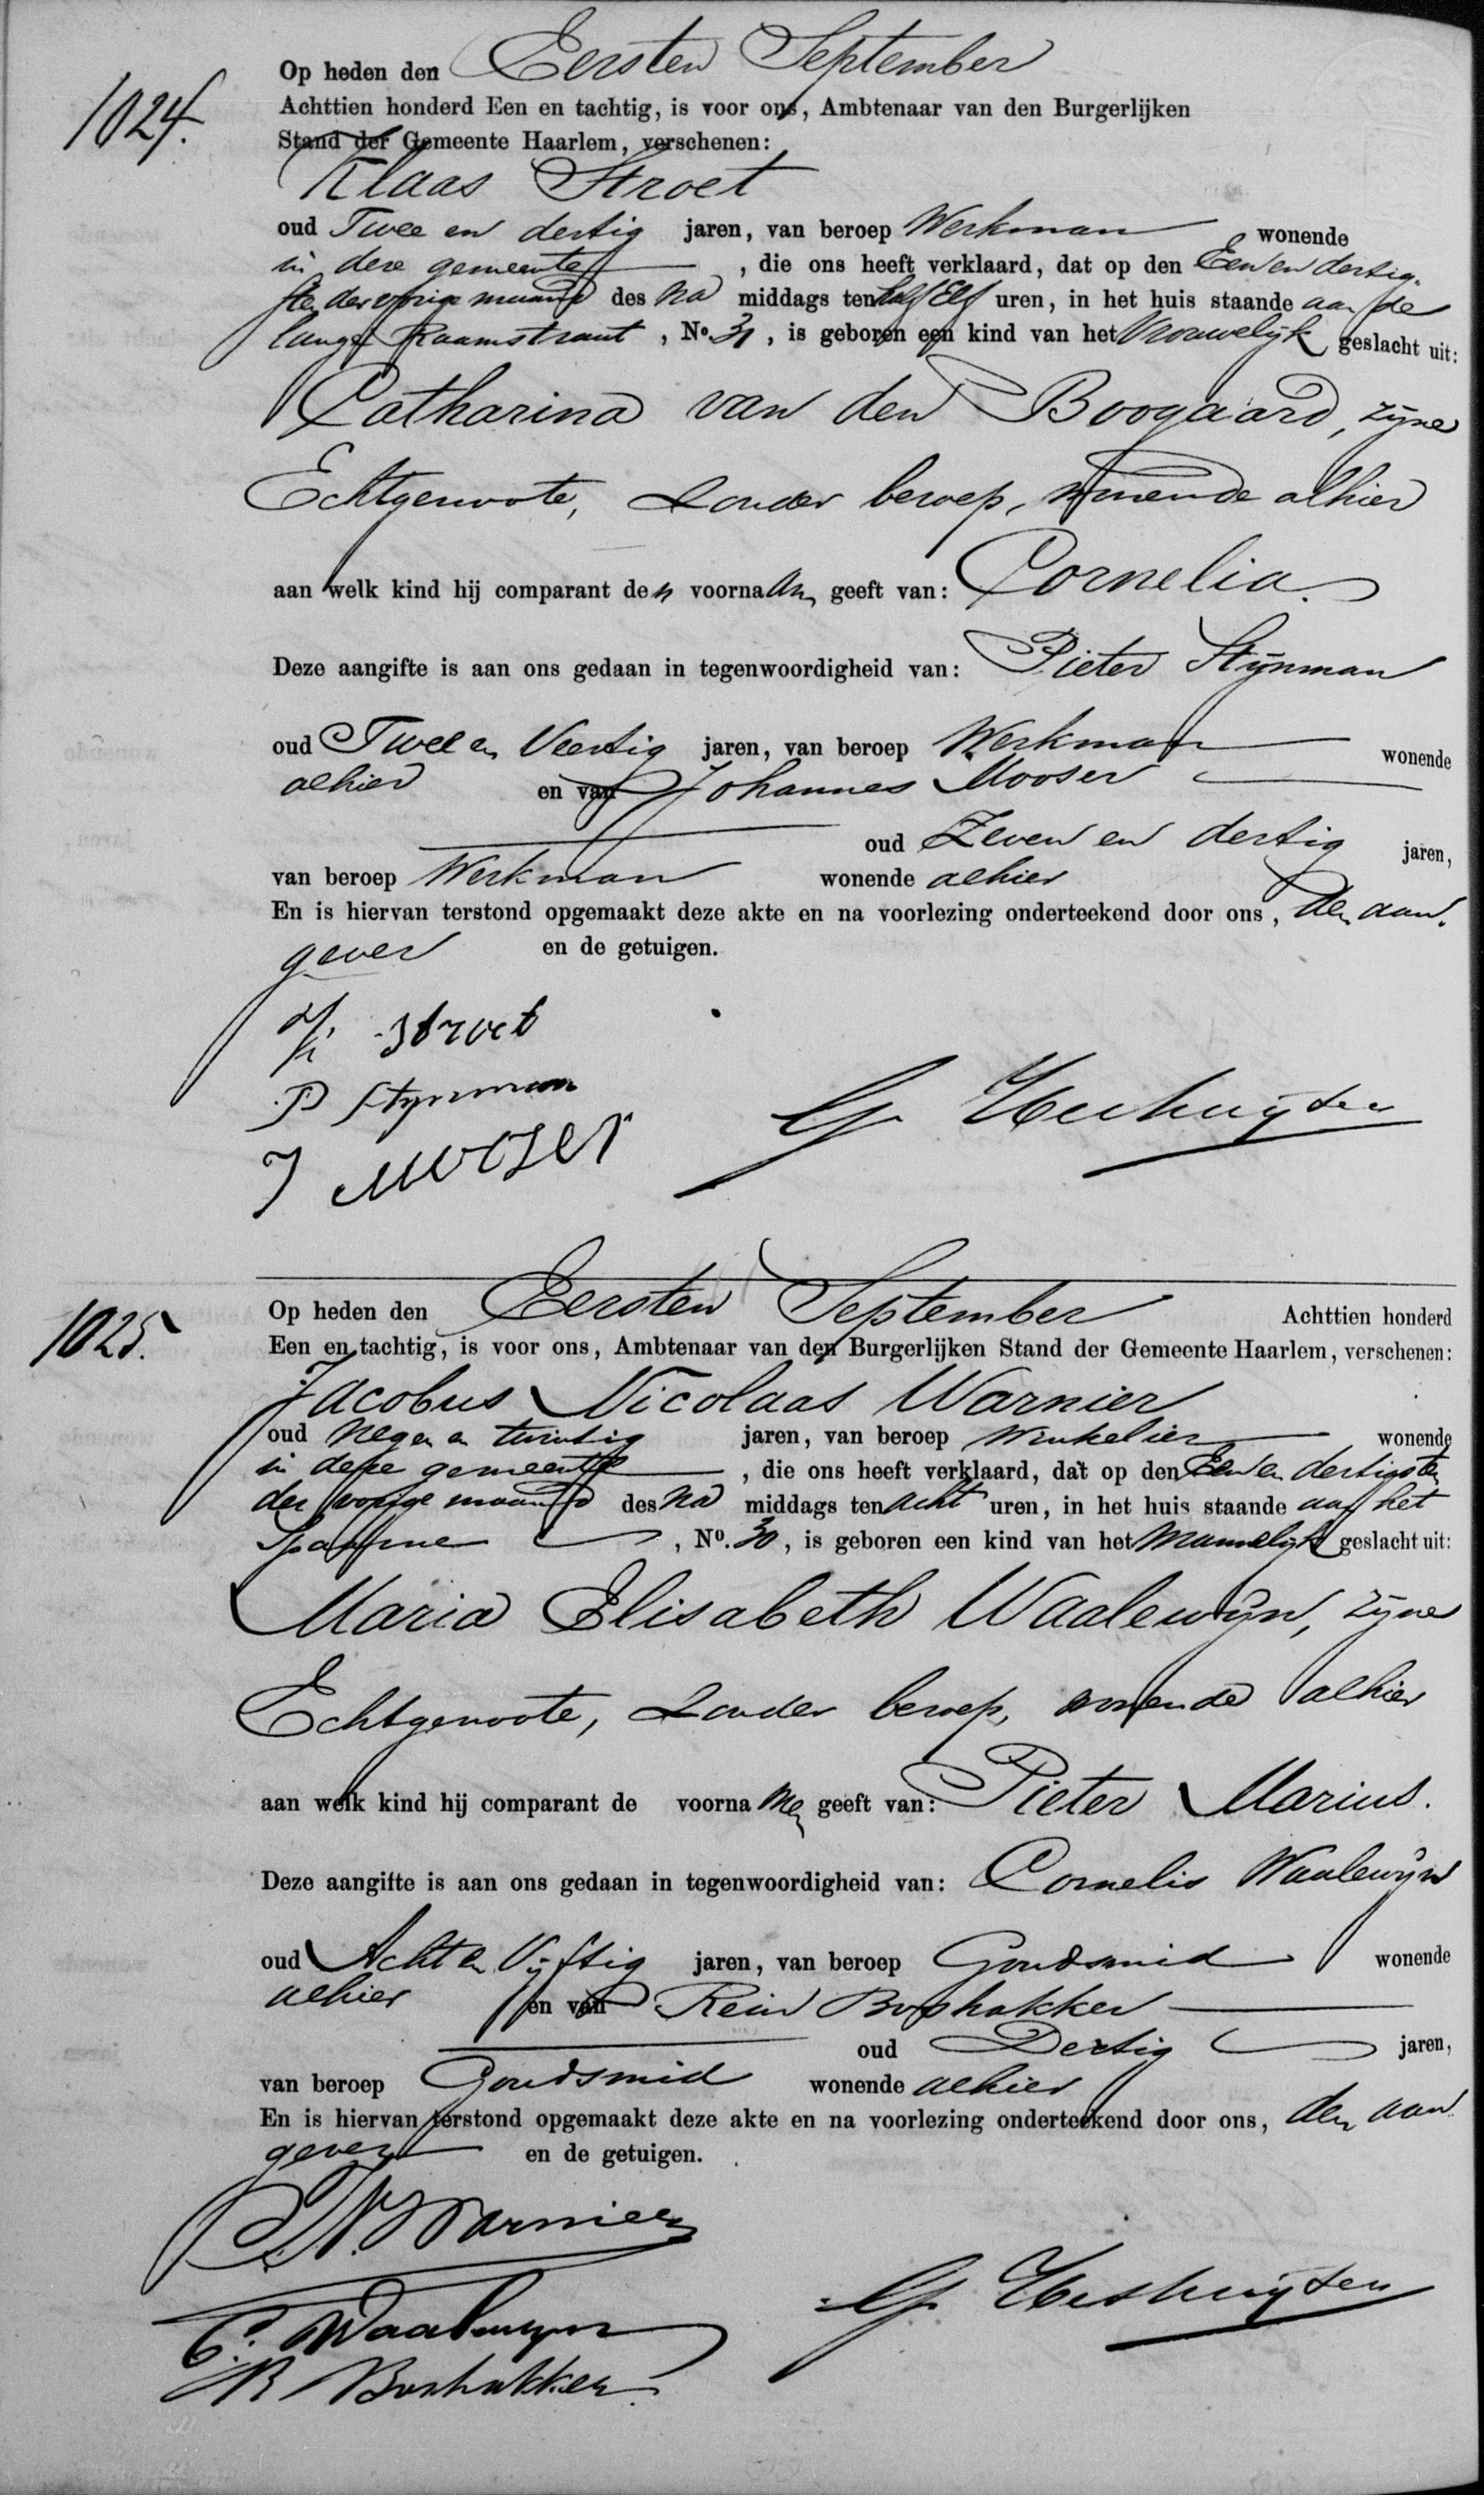 Op heden den Eersten September
1024.
Achttien honderd Een en tachtig, is voor ons, Ambtenaar van den Burgerlijken
Stand der Gemeente Haarlem, verschenen:
Klaas Stroet
oud Twee en dertig jaren, van beroep Werkman wonende
in deze gemeente, die ons heeft verklaard, dat op den Een en dertig-
sten der vorige maand des na middags ten half Elf uren, in het huis staande aan de
lange Raamstraat, No. 31, is geboren een kind van het Vrouwelijk geslacht uit:
Catharina van den Boogaard, zijne
Echtgenoote, Zonder beroep, wonende alhier
aan welk kind hij comparant den voornaam geeft van: Cornelia.
Deze aangifte is aan ons gedaan in tegenwoordigheid van: Pieter Stijnman
oud Twee en Veertig jaren, van beroep Werkman wonende
alhier en van Johannes Mooser
oud Zeven en dertig jaren,
van beroep Werkman wonende alhier
En is hiervan terstond opgemaakt deze akte en na voorlezing onderteekend door ons, den aan-
gever en de getuigen.
K Stroet
P Stynman
J Moser
Op heden den Eersten September Achttien honderd
1025.
Een en tachtig, is voor ons, Ambtenaar van den Burgerlijken Stand der Gemeente Haarlem, verschenen:
Jacobus Nicolaas Warnier
oud Negen en twintig jaren, van beroep Winkelier wonende
in deze gemeente, die ons heeft verklaard, dat op den Een en dertigsten
der vorige maand des na middags ten acht uren, in het huis staande aan het
Spaarne, No. 30, is geboren een kind van het Mannelijk geslacht uit:
Maria Elisabeth Waalewijn, zijne
Echtgenoote, Zonder beroep, wonende alhier
aan welk kind hij comparant de voornamen geeft van: Pieter Marius.
Deze aangifte is aan ons gedaan in tegenwoordigheid van: Cornelis Waalewijn
oud Acht en Vijftig jaren, van beroep Goudsmid wonende
alhier en van Rein Boshakker
oud Dertig jaren,
van beroep Goudsmid wonende alhier
En is hiervan terstond opgemaakt deze akte en na voorlezing onderteekend door ons, den aan-
gever en de getuigen.
J N Warnier
C. Waalewijn
R Boshakker